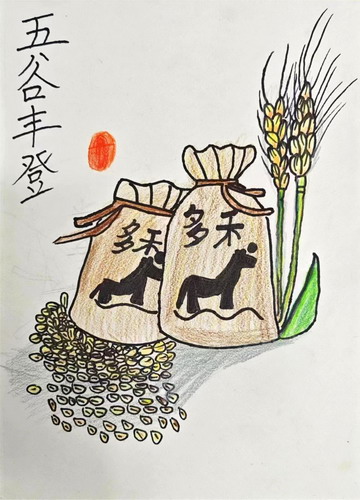 五谷丰登
多禾
多禾